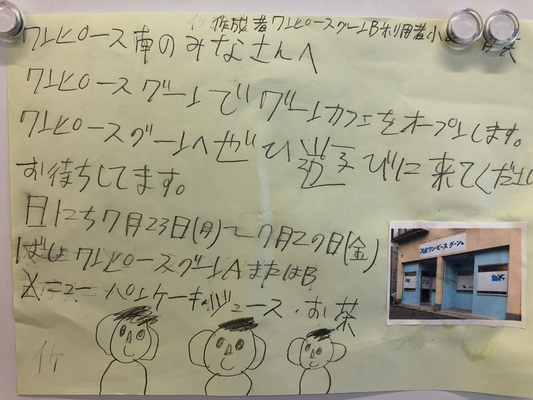 作成者 ワンピースグーンB利用者 小
ワンピース南のみなさんへ
ワンピースグーンでグーンカフェをオープンします。
ワンピースグーンへぜひ遊びに来てくださ
お待ちしてます。
日にち7月23日(月)〜7月27日(金)
ばしょワンピースグーンAまたはB
メニュー パンケーキ・ジュース・お茶
ワンピース グーン
作